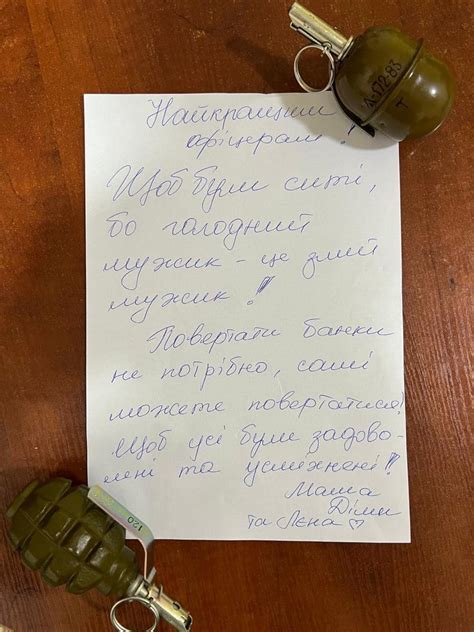 Найкращим
офіцерам!
Щоб були ситі,
бо голодний
мужик - це злий
мужик!
Повертати банки
не потрібно, самі
можете повертатися!
Щоб усі були задово-
лені та усміхнені!
Маша
Діма
та Лєна ♡
Д-172-83
Т
120